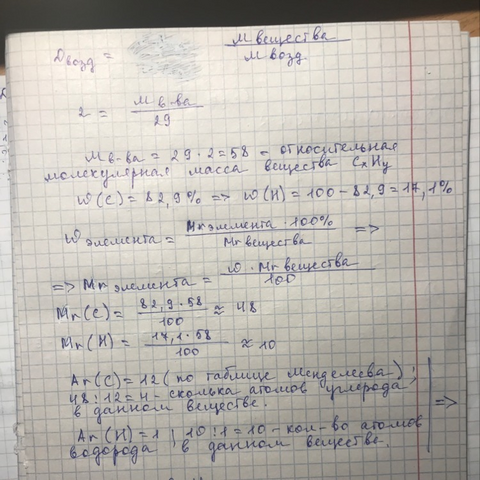 Dвозд = М вещества / М возд.
2 = М в-ва / 29
М в-ва = 29 · 2 = 58 – относительная
молекулярная масса вещества CxHy
ω(C) = 82,9% => ω(H) = 100 – 82,9 = 17,1%
ω элемента = Mr элемента · 100% / Mr вещества =>
=> Mr элемента = ω · Mr вещества / 100
Mr(C) = 82,9 · 58 / 100 ≈ 48
Mr(H) = 17,1 · 58 / 100 ≈ 10
Ar(C) = 12 (по таблице Менделеева);
48 : 12 = 4 – сколько атомов углерода
в данном веществе.
Ar(H) = 1; 10 : 1 = 10 – кол-во атомов
водорода в данном веществе. =>